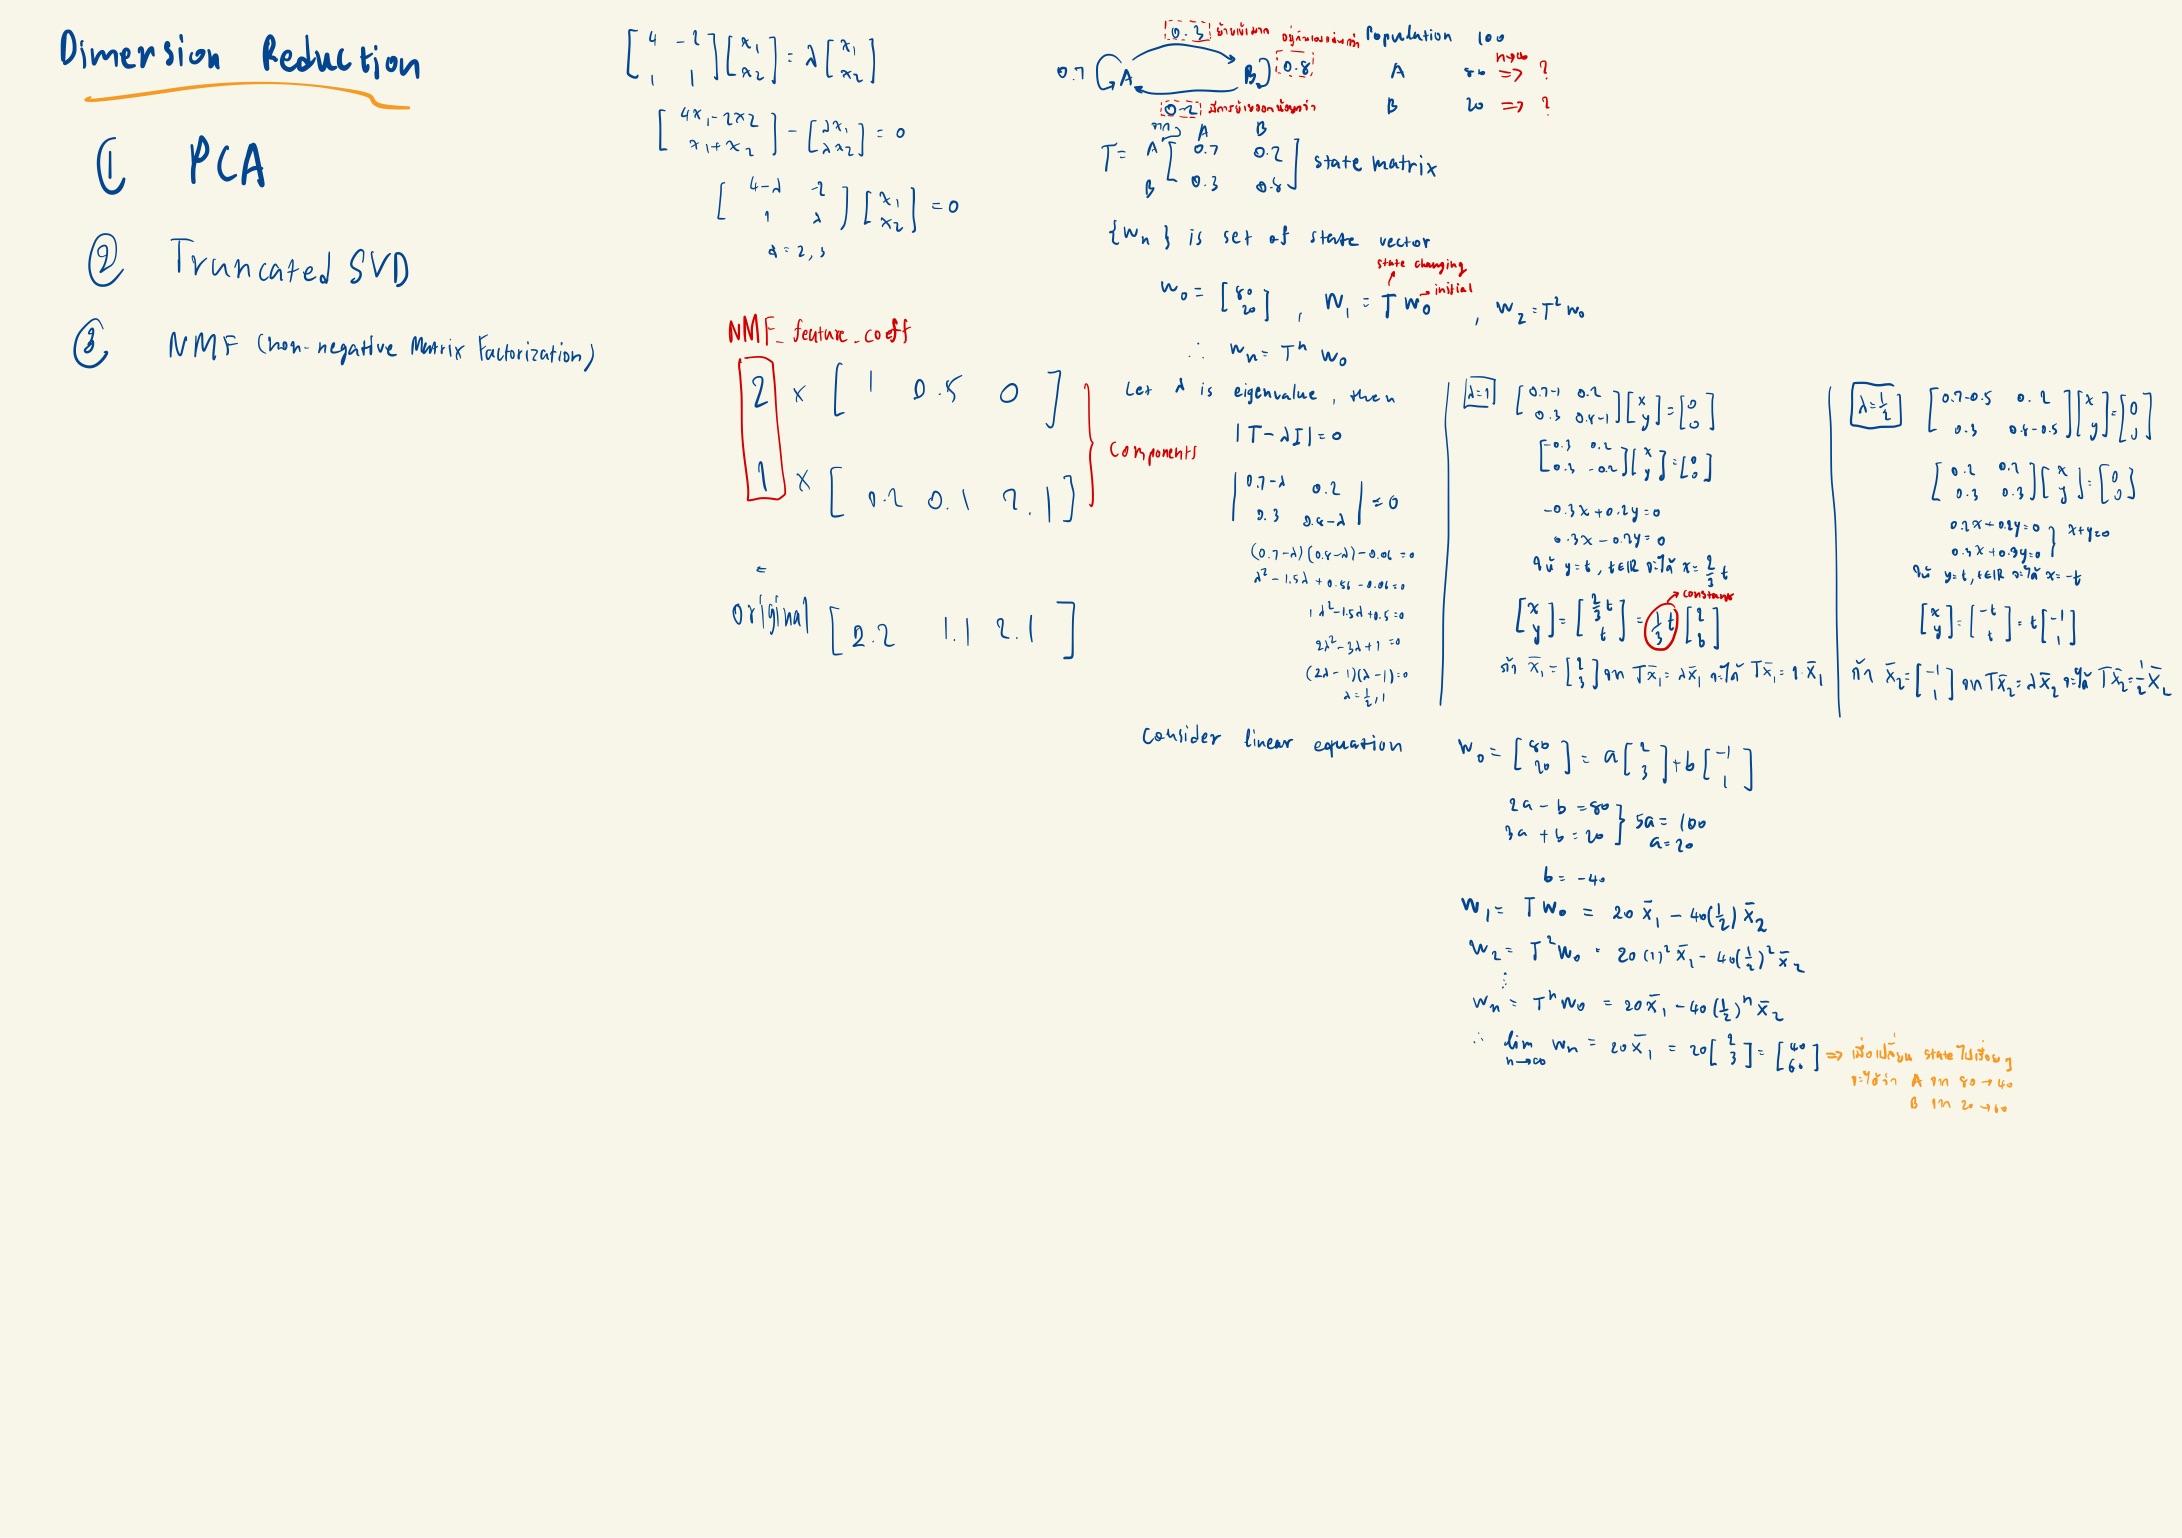 Dimension Reduction
① PCA
② Truncated SVD
③ NMF (non-negative Matrix Factorization)
[4 -2; 1 1] [x₁; x₂] = λ [x₁; x₂]
[4x₁-2x2; x₁+x₂] - [λx₁; λx₂] = 0
[4-λ -2; 1 λ] [x₁; x₂] = 0
λ = 2, 3
NMF_feature_coeff
2 × [1 0.5 0]
1 × [0.2 0.1 2.1]
Components
=
original [2.2 1.1 2.1]
0.3 ย้ายเข้ามาก
Population 100
0.7 A B 0.8
A 80 n→∞ => ?
B 20 => ?
0.2 มีการย้ายออกน้อยกว่า
จาก A B
T = A B [0.7 0.2; 0.3 0.8] state matrix
{wₙ} is set of state vector
state changing
initial
w₀ = [80; 20], W₁ = T w₀, w₂ = T² w₀
∴ wₙ = Tⁿ w₀
Let λ is eigenvalue, then
|T-λI| = 0
|0.7-λ 0.2; 0.3 0.8-λ| = 0
(0.7-λ)(0.8-λ)-0.06 = 0
λ²-1.5λ+0.56-0.06=0
1λ²-1.5λ+0.5=0
2λ²-3λ+1=0
(2λ-1)(λ-1)=0
λ=1/2, 1
λ=1 [0.7-1 0.2; 0.3 0.8-1] [x; y] = [0; 0]
[-0.3 0.2; 0.3 -0.2] [x; y] = [0; 0]
-0.3x+0.2y=0
0.3x-0.2y=0
ให้ y=t, t∈ℝ จะได้ x=2/3 t
constant
[x; y] = [2/3 t; t] = 1/3 t [2; 6]
ถ้า x̄₁ = [2; 3] จาก Tx̄₁ = λx̄₁ จะได้ Tx̄₁ = 1·x̄₁
λ=1/2 [0.7-0.5 0.2; 0.3 0.8-0.5] [x; y] = [0; 0]
[0.2 0.2; 0.3 0.3] [x; y] = [0; 0]
0.2x+0.2y=0
0.3x+0.3y=0 } x+y=0
ให้ y=t, t∈ℝ จะได้ x=-t
[x; y] = [-t; t] = t[-1; 1]
ถ้า x̄₂ = [-1; 1] จาก Tx̄₂ = λx̄₂ จะได้ Tx̄₂ = 1/2 x̄₂
Consider linear equation
w₀ = [80; 20] = a[2; 3] + b[-1; 1]
2a - b = 80
3a + b = 20 } 5a = 100
a = 20
b = -40
W₁ = T w₀ = 20 x̄₁ - 40(1/2) x̄₂
w₂ = T² w₀ = 20(1)² x̄₁ - 40(1/2)² x̄₂
⋮
wₙ = Tⁿ w₀ = 20x̄₁ - 40(1/2)ⁿ x̄₂
∴ lim n→∞ wₙ = 20x̄₁ = 20[2; 3] = [40; 60] => เมื่อเปลี่ยน state ไปเรื่อยๆ
จะได้ว่า A จาก 80 → 40
B จาก 20 → 60